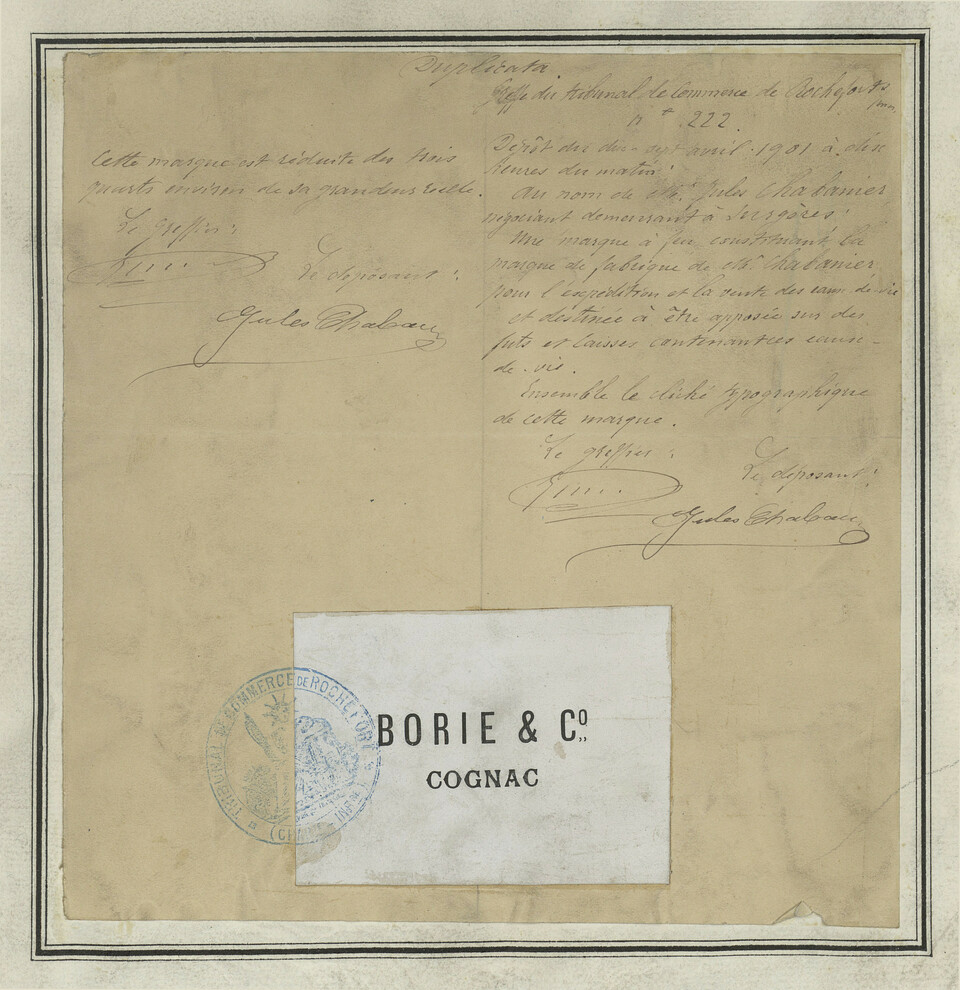 Duplicata
Greffe du tribunal de Commerce de Rochefort s/mer
n° 222.
Cette marque est réduite des trois
quarts environ de sa grandeur réelle.
Le greffier :
Le déposant :
Jules Chabanier
Dépôt du dix-sept avril 1901 à dix
heures du matin
au nom de Mr. Jules Chabanier,
négociant demeurant à Surgères :
Une marque à feu constituant la
marque de fabrique de Mr. Chabanier
pour l'expédition et la vente des eaux-de-vie
et destinée à être apposée sur des
futs et caisses contenant ces eaux-
de-vie.
Ensemble le cliché typographique
de cette marque.
Le greffier :
Le déposant :
Jules Chabanier
BORIE & Co
COGNAC
TRIBUNAL DE COMMERCE DE ROCHEFORT